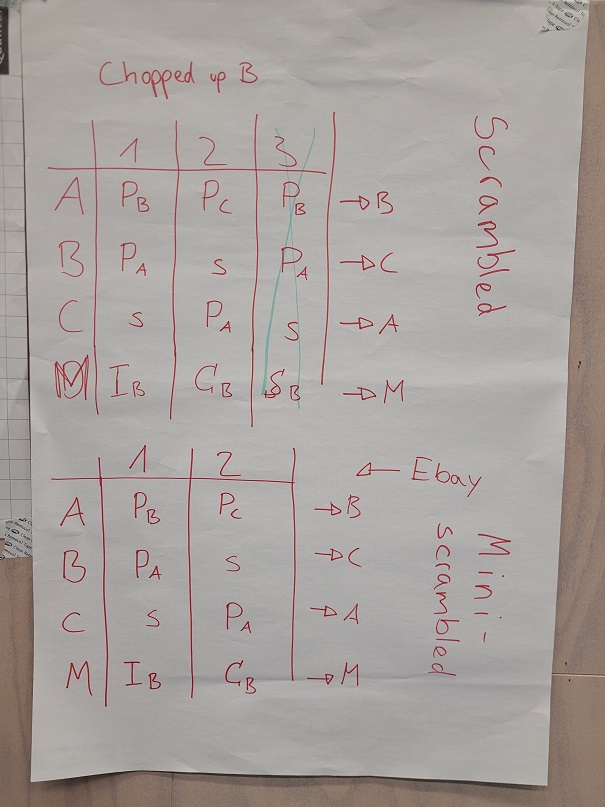 Chopped up B
Scrambled
1 2 3
A P_B P_C P_B → B
B P_A s P_A → C
C s P_A s → A
M I_B C_B S_B → M
← Ebay
Mini-
scrambled
1 2
A P_B P_C → B
B P_A s → C
C s P_A → A
M I_B C_B → M